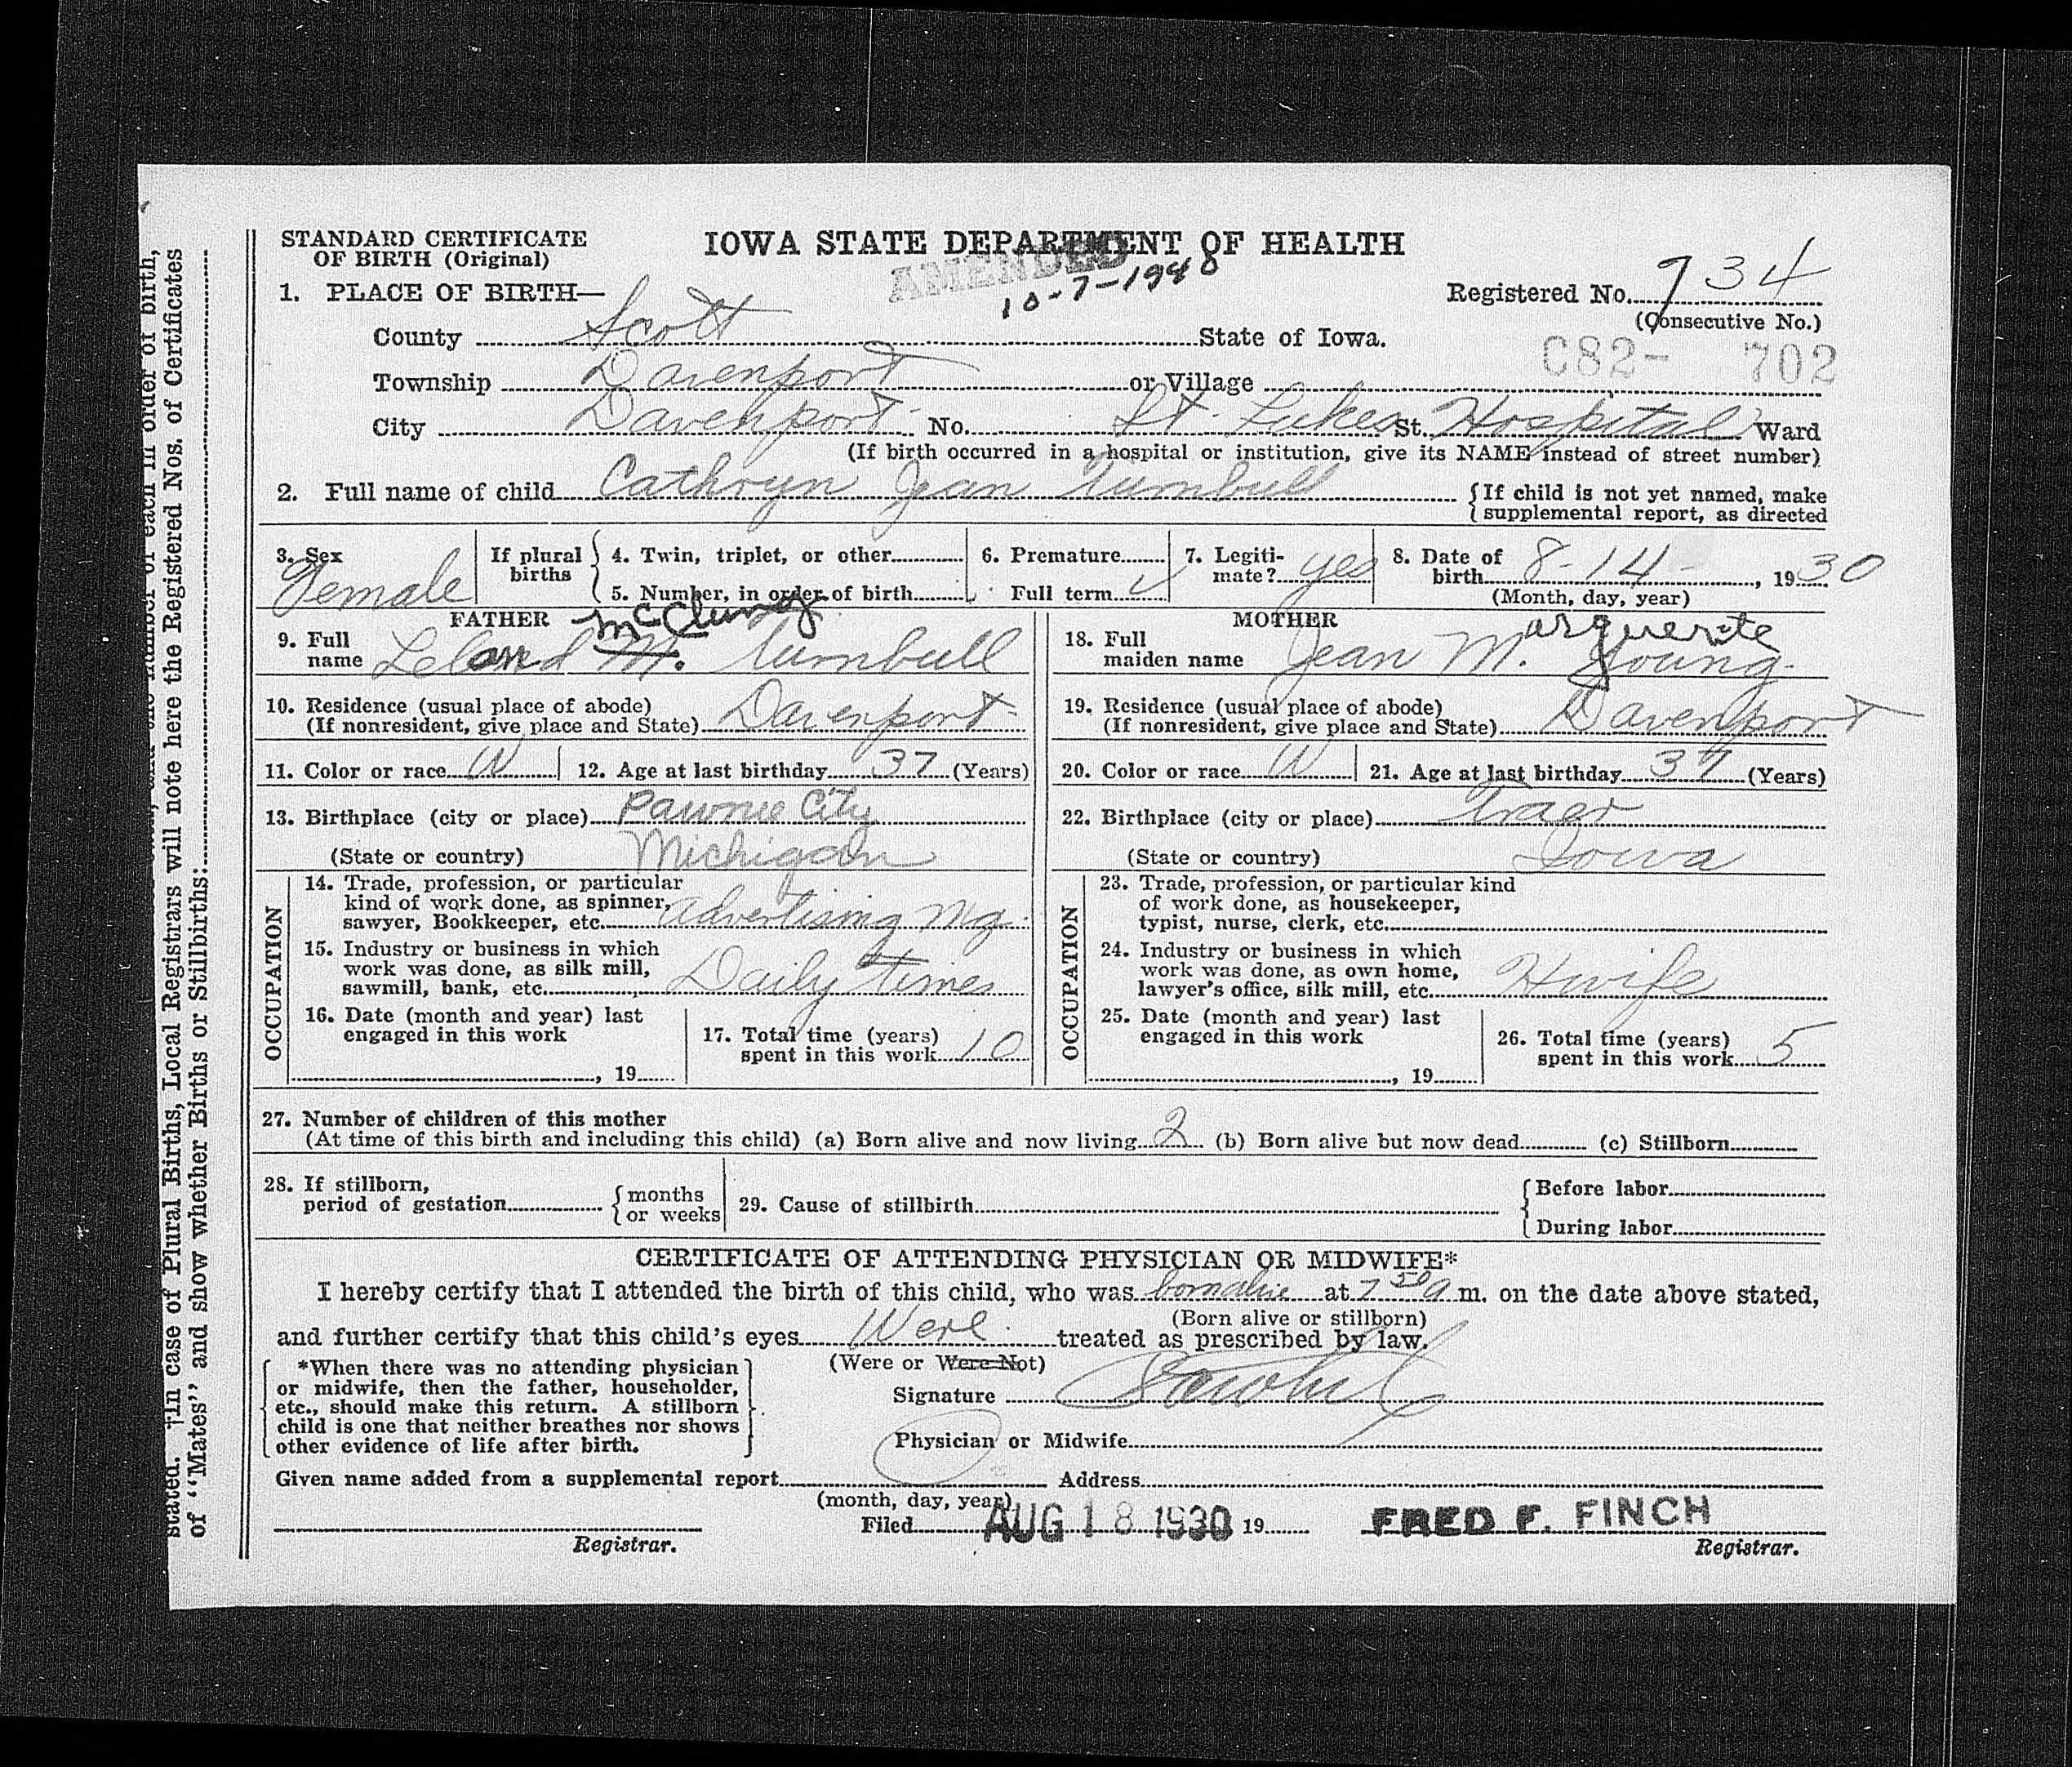 STANDARD CERTIFICATE
OF BIRTH (Original)
IOWA STATE DEPARTMENT OF HEALTH
AMENDED
10-7-1948
1. PLACE OF BIRTH—
Registered No. 734
(Consecutive No.)
County Scott State of Iowa.
C82- 702
Township Davenport or Village
City Davenport No. St. Lukes St. Hospital Ward
(If birth occurred in a hospital or institution, give its NAME instead of street number)
2. Full name of child Cathryn Jean Turnbull {If child is not yet named, make
supplemental report, as directed
3. Sex Female
If plural births
4. Twin, triplet, or other
5. Number, in order of birth
6. Premature
Full term ✓
7. Legiti-
mate? yes
8. Date of
birth 8-14-, 1930
(Month, day, year)
FATHER
McClung
9. Full
name Leland M. Turnbull
10. Residence (usual place of abode)
(If nonresident, give place and State) Davenport
11. Color or race W 12. Age at last birthday 37 (Years)
13. Birthplace (city or place) Pawnie City
(State or country) Michigan
OCCUPATION
14. Trade, profession, or particular
kind of work done, as spinner,
sawyer, Bookkeeper, etc. Advertising Mg.
15. Industry or business in which
work was done, as silk mill,
sawmill, bank, etc. Daily Times
16. Date (month and year) last
engaged in this work
, 19
17. Total time (years)
spent in this work 10
MOTHER
arguerite
18. Full
maiden name Jean M. Young
19. Residence (usual place of abode)
(If nonresident, give place and State) Davenport
20. Color or race W 21. Age at last birthday 37 (Years)
22. Birthplace (city or place) Traer
(State or country) Iowa
OCCUPATION
23. Trade, profession, or particular kind
of work done, as housekeeper,
typist, nurse, clerk, etc.
24. Industry or business in which
work was done, as own home,
lawyer's office, silk mill, etc. Hwife
25. Date (month and year) last
engaged in this work
, 19
26. Total time (years)
spent in this work 5
27. Number of children of this mother
(At time of this birth and including this child) (a) Born alive and now living 2 (b) Born alive but now dead (c) Stillborn
28. If stillborn,
period of gestation {months
or weeks
29. Cause of stillbirth
{Before labor
During labor
CERTIFICATE OF ATTENDING PHYSICIAN OR MIDWIFE*
I hereby certify that I attended the birth of this child, who was born alive at 7 50 a m. on the date above stated,
(Born alive or stillborn)
and further certify that this child's eyes Were treated as prescribed by law.
(Were or Were Not)
*When there was no attending physician
or midwife, then the father, householder,
etc., should make this return. A stillborn
child is one that neither breathes nor shows
other evidence of life after birth.
Signature
Physician or Midwife
Given name added from a supplemental report Address
(month, day, year)
Filed AUG 18 1930 19 FRED F. FINCH
Registrar. Registrar.
stated. †In case of Plural Births, Local Registrars will note here the Registered Nos. of Certificates
of "Mates" and show whether Births or Stillbirths: